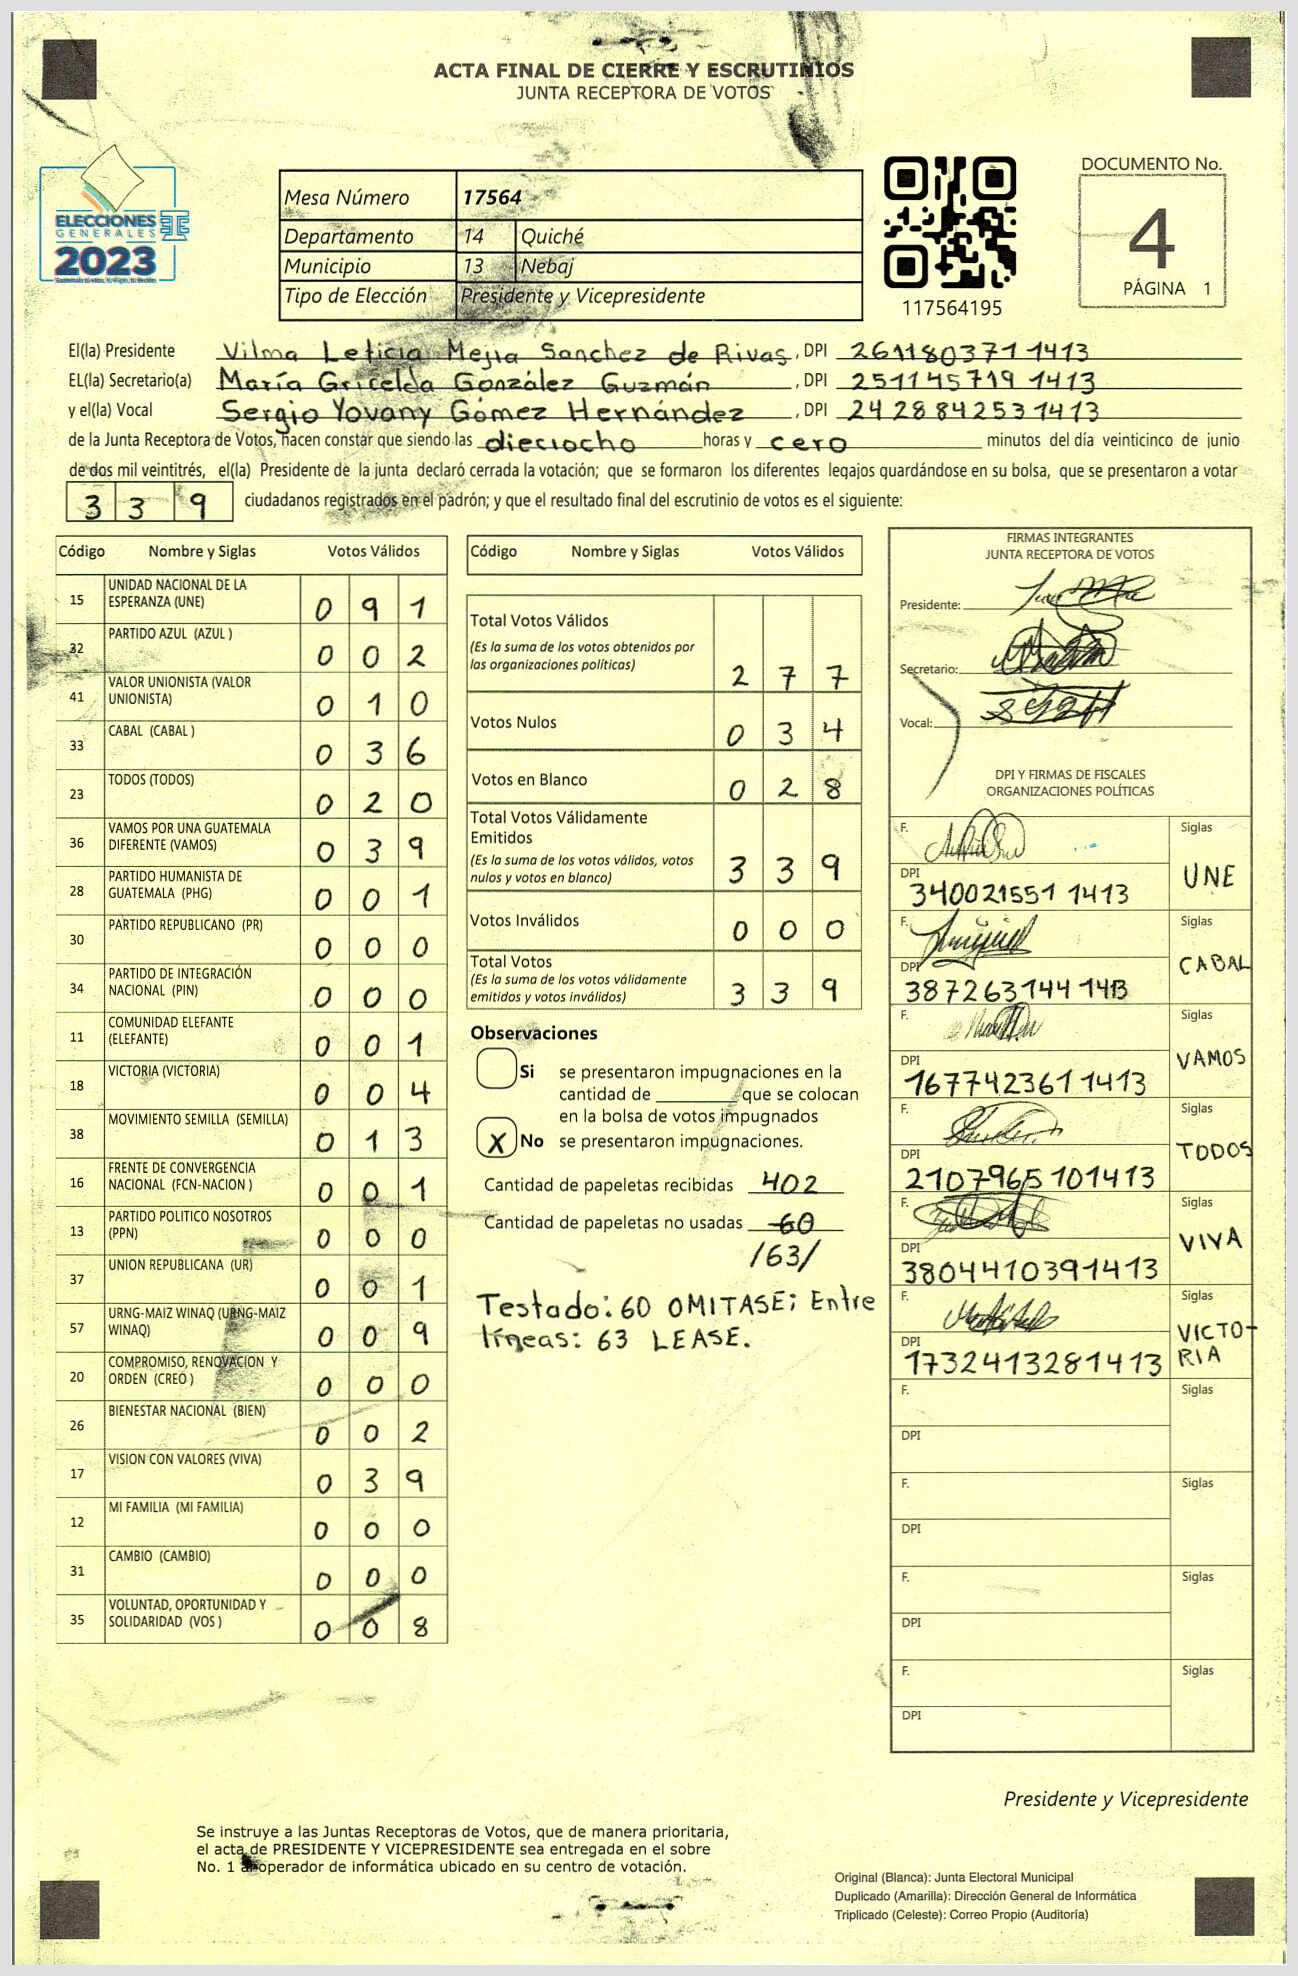 ACTA FINAL DE CIERRE Y ESCRUTINIOS
JUNTA RECEPTORA DE VOTOS
ELECCIONES
GENERALES
2023
Mesa Número 17564
Departamento 14 Quiché
Municipio 13 Nebaj
Tipo de Elección Presidente y Vicepresidente
117564195
DOCUMENTO No.
4
PÁGINA 1
El(la) Presidente Vilma Leticia Mejia Sanchez de Rivas, DPI 261180371 1413
EL(la) Secretario(a) María Gricelda González Guzmán, DPI 251145719 1413
y el(la) Vocal Sergio Yovany Gómez Hernández, DPI 242884253 1413
de la Junta Receptora de Votos, hacen constar que siendo las dieciocho horas y cero minutos del día veinticinco de junio
de dos mil veintitrés, el(la) Presidente de la junta declaró cerrada la votación; que se formaron los diferentes legajos quardándose en su bolsa, que se presentaron a votar
339 ciudadanos registrados en el padrón; y que el resultado final del escrutinio de votos es el siguiente:
Código Nombre y Siglas Votos Válidos
15 UNIDAD NACIONAL DE LA ESPERANZA (UNE) 091
32 PARTIDO AZUL (AZUL ) 002
41 VALOR UNIONISTA (VALOR UNIONISTA) 010
33 CABAL (CABAL ) 036
23 TODOS (TODOS) 020
36 VAMOS POR UNA GUATEMALA DIFERENTE (VAMOS) 039
28 PARTIDO HUMANISTA DE GUATEMALA (PHG) 001
30 PARTIDO REPUBLICANO (PR) 000
34 PARTIDO DE INTEGRACIÓN NACIONAL (PIN) 000
11 COMUNIDAD ELEFANTE (ELEFANTE) 001
18 VICTORIA (VICTORIA) 004
38 MOVIMIENTO SEMILLA (SEMILLA) 013
16 FRENTE DE CONVERGENCIA NACIONAL (FCN-NACION ) 001
13 PARTIDO POLITICO NOSOTROS (PPN) 000
37 UNION REPUBLICANA (UR) 001
57 URNG-MAIZ WINAQ (URNG-MAIZ WINAQ) 009
20 COMPROMISO, RENOVACION Y ORDEN (CREO ) 000
26 BIENESTAR NACIONAL (BIEN) 002
17 VISION CON VALORES (VIVA) 039
12 MI FAMILIA (MI FAMILIA) 000
31 CAMBIO (CAMBIO) 000
35 VOLUNTAD, OPORTUNIDAD Y SOLIDARIDAD (VOS ) 008
Código Nombre y Siglas Votos Válidos
Total Votos Válidos 277
(Es la suma de los votos obtenidos por
las organizaciones políticas)
Votos Nulos 034
Votos en Blanco 028
Total Votos Válidamente
Emitidos 339
(Es la suma de los votos válidos, votos
nulos y votos en blanco)
Votos Inválidos 000
Total Votos 339
(Es la suma de los votos válidamente
emitidos y votos inválidos)
Observaciones
Si se presentaron impugnaciones en la
cantidad de ________ que se colocan
en la bolsa de votos impugnados
X No se presentaron impugnaciones.
Cantidad de papeletas recibidas 402
Cantidad de papeletas no usadas 60
/63/
Testado: 60 OMITASE; Entre
líneas: 63 LEASE.
FIRMAS INTEGRANTES
JUNTA RECEPTORA DE VOTOS
Presidente:
Secretario:
Vocal:
DPI Y FIRMAS DE FISCALES
ORGANIZACIONES POLÍTICAS
F. Siglas
DPI 340021551 1413 UNE
F. Siglas
DPI 387263144 1413 CABAL
F. Siglas
DPI 167742361 1413 VAMOS
F. Siglas
DPI 2107965101413 TODOS
F. Siglas
DPI 3804410391413 VIVA
F. Siglas
DPI 1732413281413 VICTO-
RIA
F. Siglas
DPI
F. Siglas
DPI
F. Siglas
DPI
F. Siglas
DPI
Presidente y Vicepresidente
Se instruye a las Juntas Receptoras de Votos, que de manera prioritaria,
el acta de PRESIDENTE Y VICEPRESIDENTE sea entregada en el sobre
No. 1 al operador de informática ubicado en su centro de votación.
Original (Blanca): Junta Electoral Municipal
Duplicado (Amarilla): Dirección General de Informática
Triplicado (Celeste): Correo Propio (Auditoría)